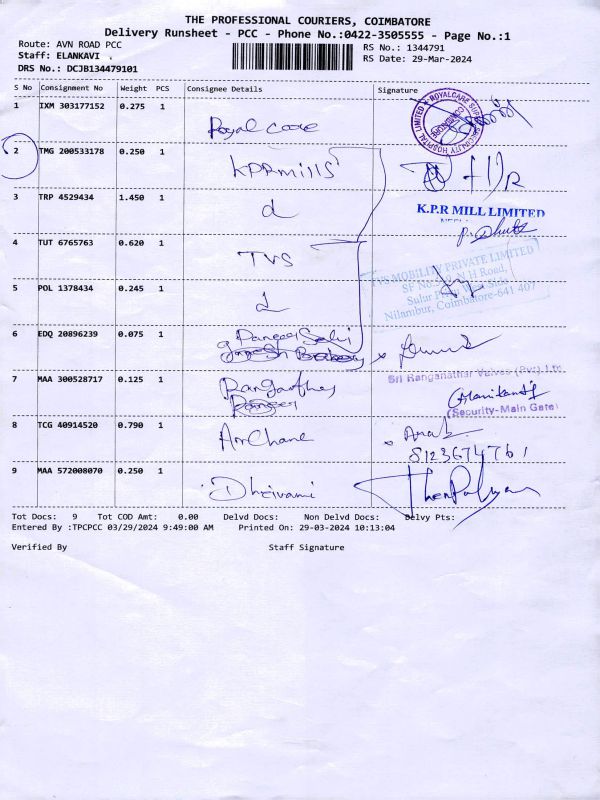 THE PROFESSIONAL COURIERS, COIMBATORE
Delivery Runsheet - PCC - Phone No.:0422-3505555 - Page No.:1
Route: AVN ROAD PCC
RS No.: 1344791
Staff: ELANKAVI .
RS Date: 29-Mar-2024
DRS No.: DCJB134479101
S No Consignment No Weight PCS Consignee Details Signature
1 IXM 303177152 0.275 1 Royal care
ROYALCARE SUPER SPECIALITY HOSPITAL LIMITED
2 TMG 200533178 0.250 1 KPR mills
3 TRP 4529434 1.450 1
K.P.R MILL LIMITED
4 TUT 6765763 0.620 1 TVS
TVS MOBILITY PRIVATE LIMITED
5 POL 1378434 0.245 1
Nilambur, Coimbatore-641 407
6 EDQ 20896239 0.075 1
7 MAA 300528717 0.125 1
Sri Ranganathar Valves (Pvt) Ltd
Manikandan
(Security-Main Gate)
8 TCG 40914520 0.790 1
8123674761
9 MAA 572008070 0.250 1 Dheivani
Tot Docs: 9 Tot COD Amt: 0.00 Delvd Docs: Non Delvd Docs: Delvy Pts:
Entered By :TPCPCC 03/29/2024 9:49:00 AM Printed On: 29-03-2024 10:13:04
Verified By Staff Signature